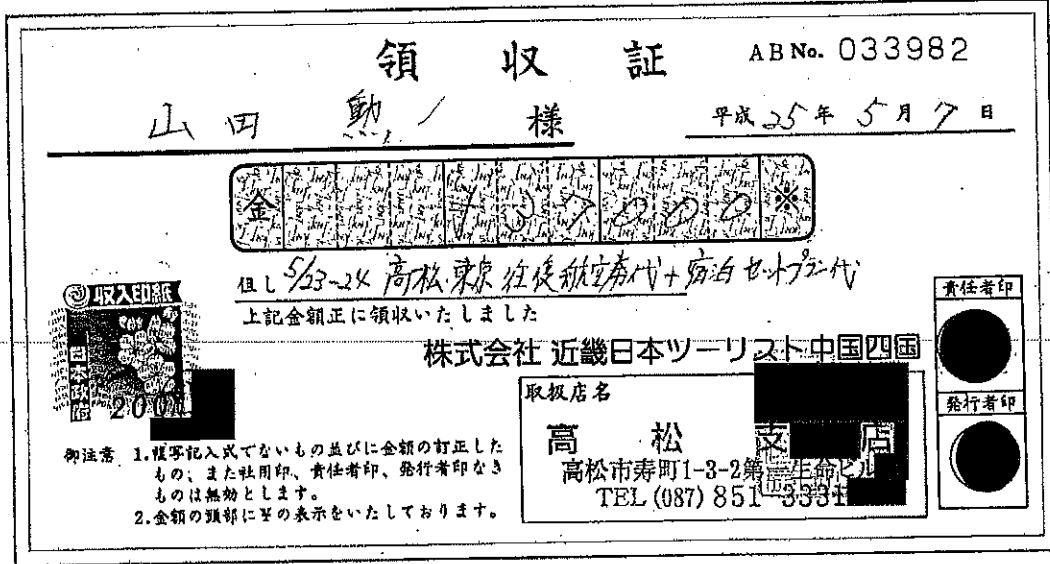 領収証 ABNo. 033982
山田 勲 様 平成25年5月7日
金 ¥37000 ※
但し 5/23-24 高松.東京 往復航空券代+宿泊セットプラン代
上記金額正に領収いたしました
収入印紙
日本政府
200
責任者印
株式会社 近畿日本ツーリスト中国四国
取扱店名
発行者印
高松支店
高松市寿町1-3-2第一生命ビル
TEL(087)851-3331
御注意 1.複写記入式でないもの並びに金額の訂正した
もの、また社用印、責任者印、発行者印なき
ものは無効とします。
2.金額の頭部に¥の表示をいたしております。